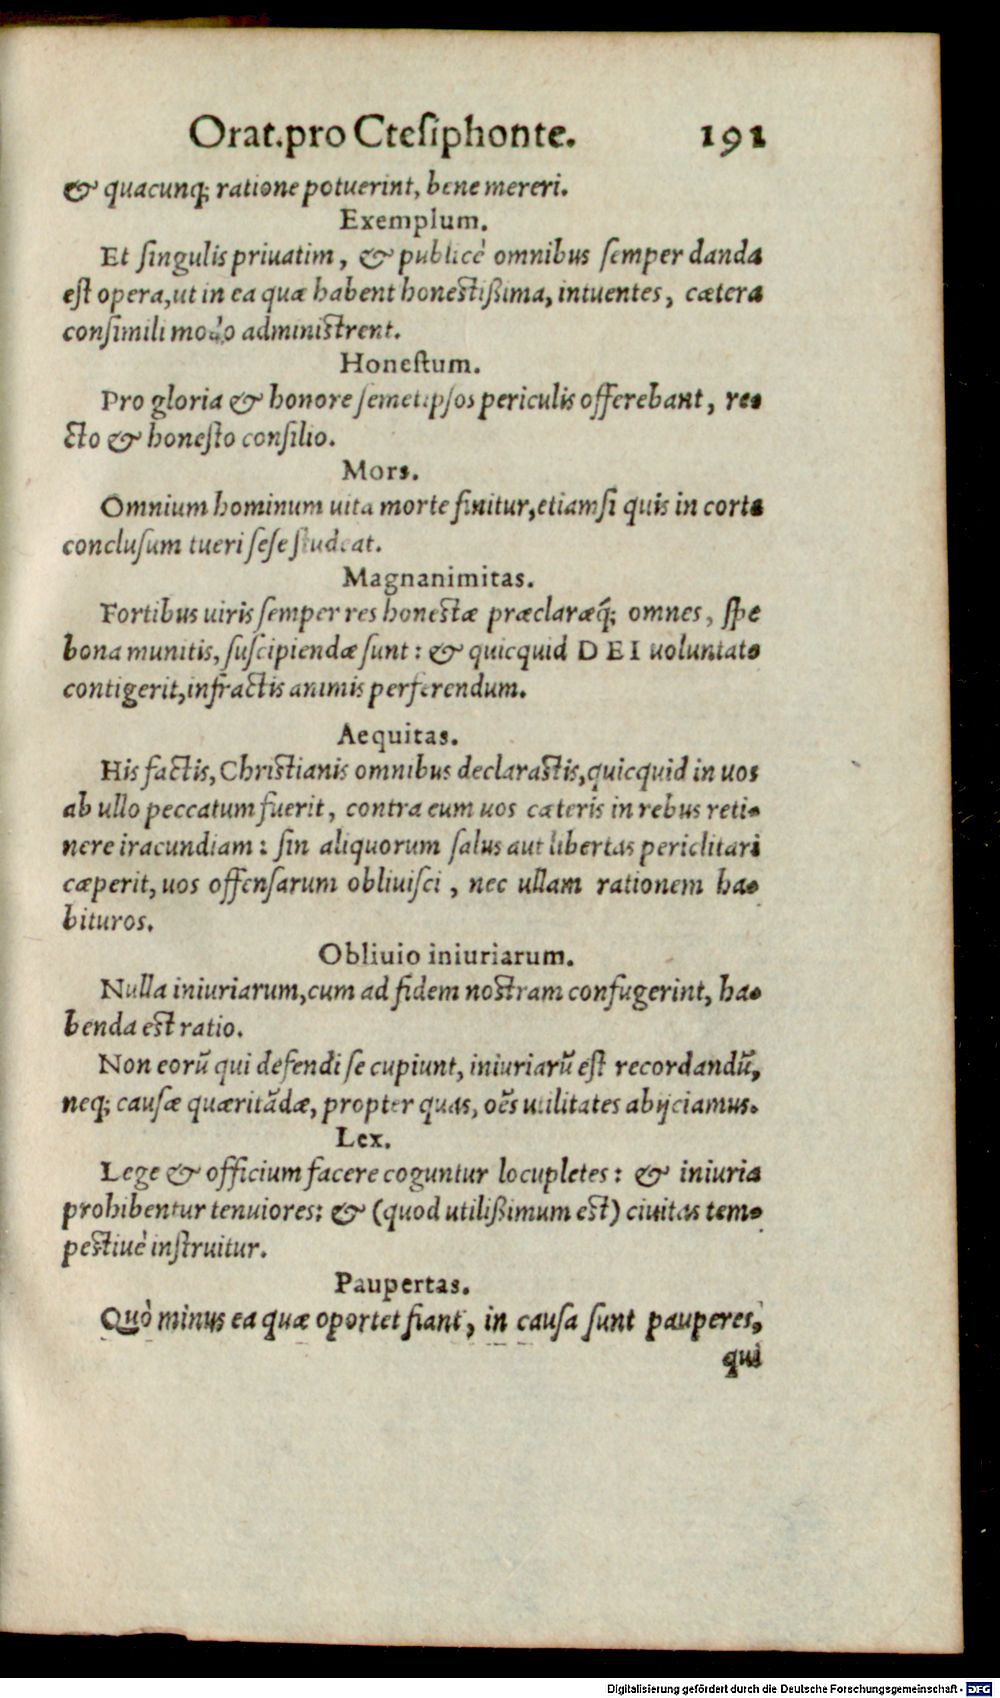 Orat. pro Cteſiphonte. 191
& quacunq; ratione potuerint, bene mereri.
Exemplum.
Et ſingulis priuatim, & publicè omnibus ſemper danda
eſt opera, ut in ea quæ habent honeſtißima, intuentes, cætera
conſimili modo adminiſtrent.
Honeſtum.
Pro gloria & honore ſemetipſos periculis offerebant, re-
cto & honeſto conſilio.
Mors.
Omnium hominum uita morte finitur, etiamſi quis in corte
concluſum tueri ſeſe ſtudeat.
Magnanimitas.
Fortibus uiris ſemper res honeſtæ præclaræq́; omnes, ſpe
bona munitis, ſuſcipiendæ ſunt: & quicquid DEI uoluntate
contigerit, infractis animis perferendum.
Aequitas.
His factis, Chriſtianis omnibus declaraſtis, quicquid in uos
ab ullo peccatum fuerit, contra eum uos cæteris in rebus reti-
nere iracundiam: ſin aliquorum ſalus aut libertas periclitari
cæperit, uos offenſarum obliuiſci, nec ullam rationem ha-
bituros.
Obliuio iniuriarum.
Nulla iniuriarum, cum ad fidem noſtram confugerint, ha-
benda eſt ratio.
Non eorũ qui defendi ſe cupiunt, iniuriarũ eſt recordandũ,
neq; cauſæ quæritãdæ, propter quas, oẽs utilitates abijciamus.
Lex.
Lege & officium facere coguntur locupletes: & iniuria
prohibentur tenuiores: & (quod utilißimum eſt) ciuitas tem-
peſtiuè inſtruitur.
Paupertas.
Quò minus ea quæ oportet fiant, in cauſa ſunt pauperes,
qui
Digitalisierung gefördert durch die Deutsche Forschungsgemeinschaft - DFG